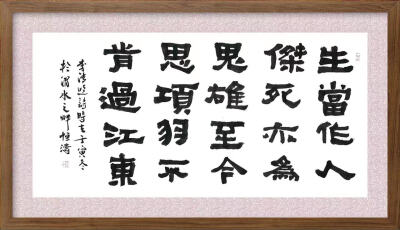 生當作人
傑死亦為
鬼雄至今
思項羽不
肯過江東
李清照詩時在壬寅冬
於渭水之畔恒濤